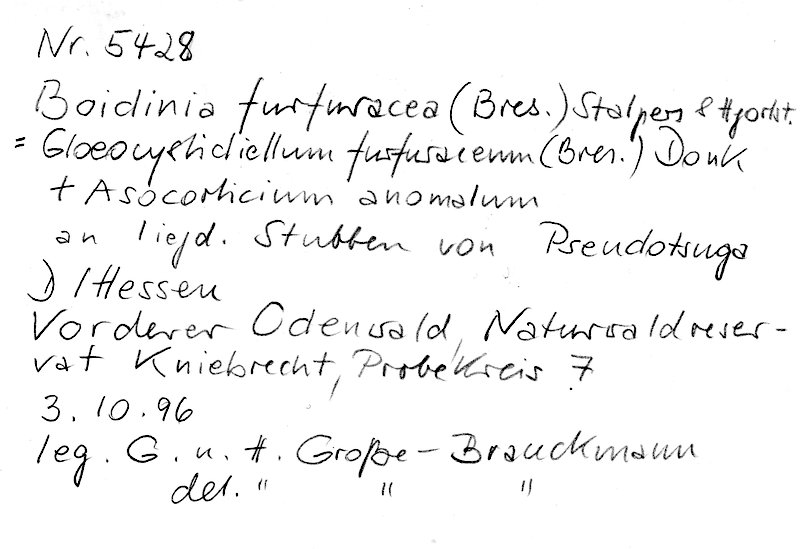 Nr. 5428
Boidinia furfuracea (Bres.) Stalpers & Hjortst.
= Gloeocystidiellum furfuraceum (Bres.) Donk
+ Asocorticium anomalum
an liegd. Stubben von Pseudotsuga
D/Hessen
Vorderer Odenwald, Naturwaldreser-
vat Kniebrecht, Probekreis 7
3. 10. 96
leg. G. u. H. Große-Brauckmann
det. " " "